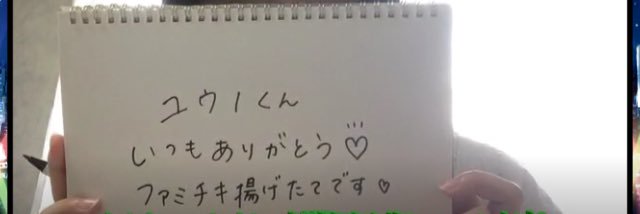 ユウノくん
いつもありがとう♡
ファミチキ揚げたてです♡